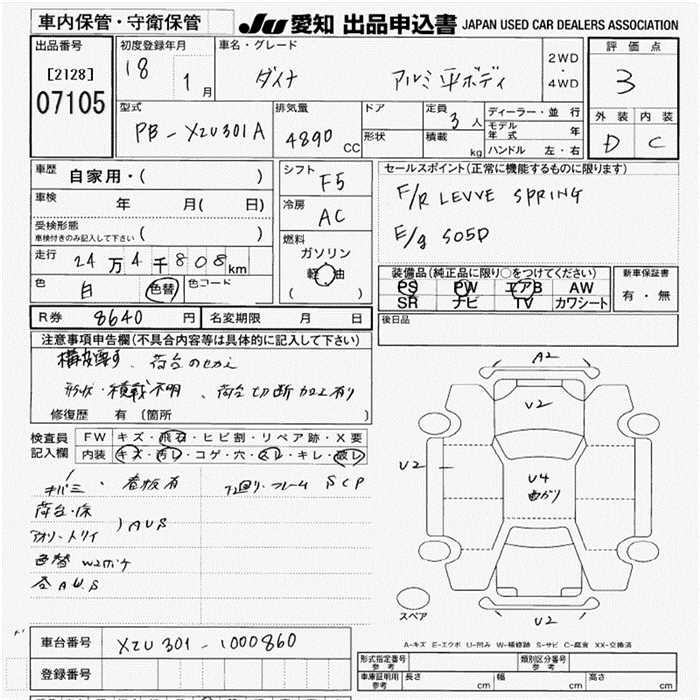 車内保管・守衛保管 JU 愛知 出品申込書 JAPAN USED CAR DEALERS ASSOCIATION
出品番号
[2128]
07105
初度登録年月
18 1月
車名・グレード
ダイナ アルミ平ボディ
2WD
・
4WD
評価点
3
外装 内装
D C
型式
PB-XZU301A
排気量
4890 CC
ドア
形状
定員
3人
積載
kg
ディーラー・並行
モデル年式 年
ハンドル 左・右
車歴
自家用・( )
車検
年 月( 日)
受検形態
車検付きのみ記入して下さい ( )
走行
24万4千808km
色
白 色替 色コード
シフト
F5
冷房
AC
燃料
ガソリン
軽油
( )
セールスポイント(正常に機能するものに限ります)
F/R LEVVE SPRING
E/g S05D
装備品(純正品に限り○をつけてください)
PS PW エアB AW
SR ナビ TV カワシート
新車保証書
有・無
R券 8640円
名変期限 月 日
後日品
注意事項申告欄(不具合内容等は具体的に記入して下さい)
構変要す、荷台のせかえ
形状・積載不明、荷台切断加工有り
修復歴 有(箇所 )
検査員
記入欄
FW キズ・飛石・ヒビ割・リペア跡・X要
内装 キズ・汚レ・コゲ・穴・スレ・キレ・破レ
看板有
下廻り・フレーム SCP
荷台・床
アオリ・トリイ
)AUS
色替 W2ボケ
各AUS
A2
U2
U2
U4
曲がり
U2
スペア
A-キズ E-エクボ U-凹み W-補修跡 S-サビ C-腐食 XX-交換済
車台番号
XZU301-1000860
登録番号
形式指定番号
参考
類別区分番号
参考
車庫証明用
参考
長さ cm
幅 cm
高さ cm